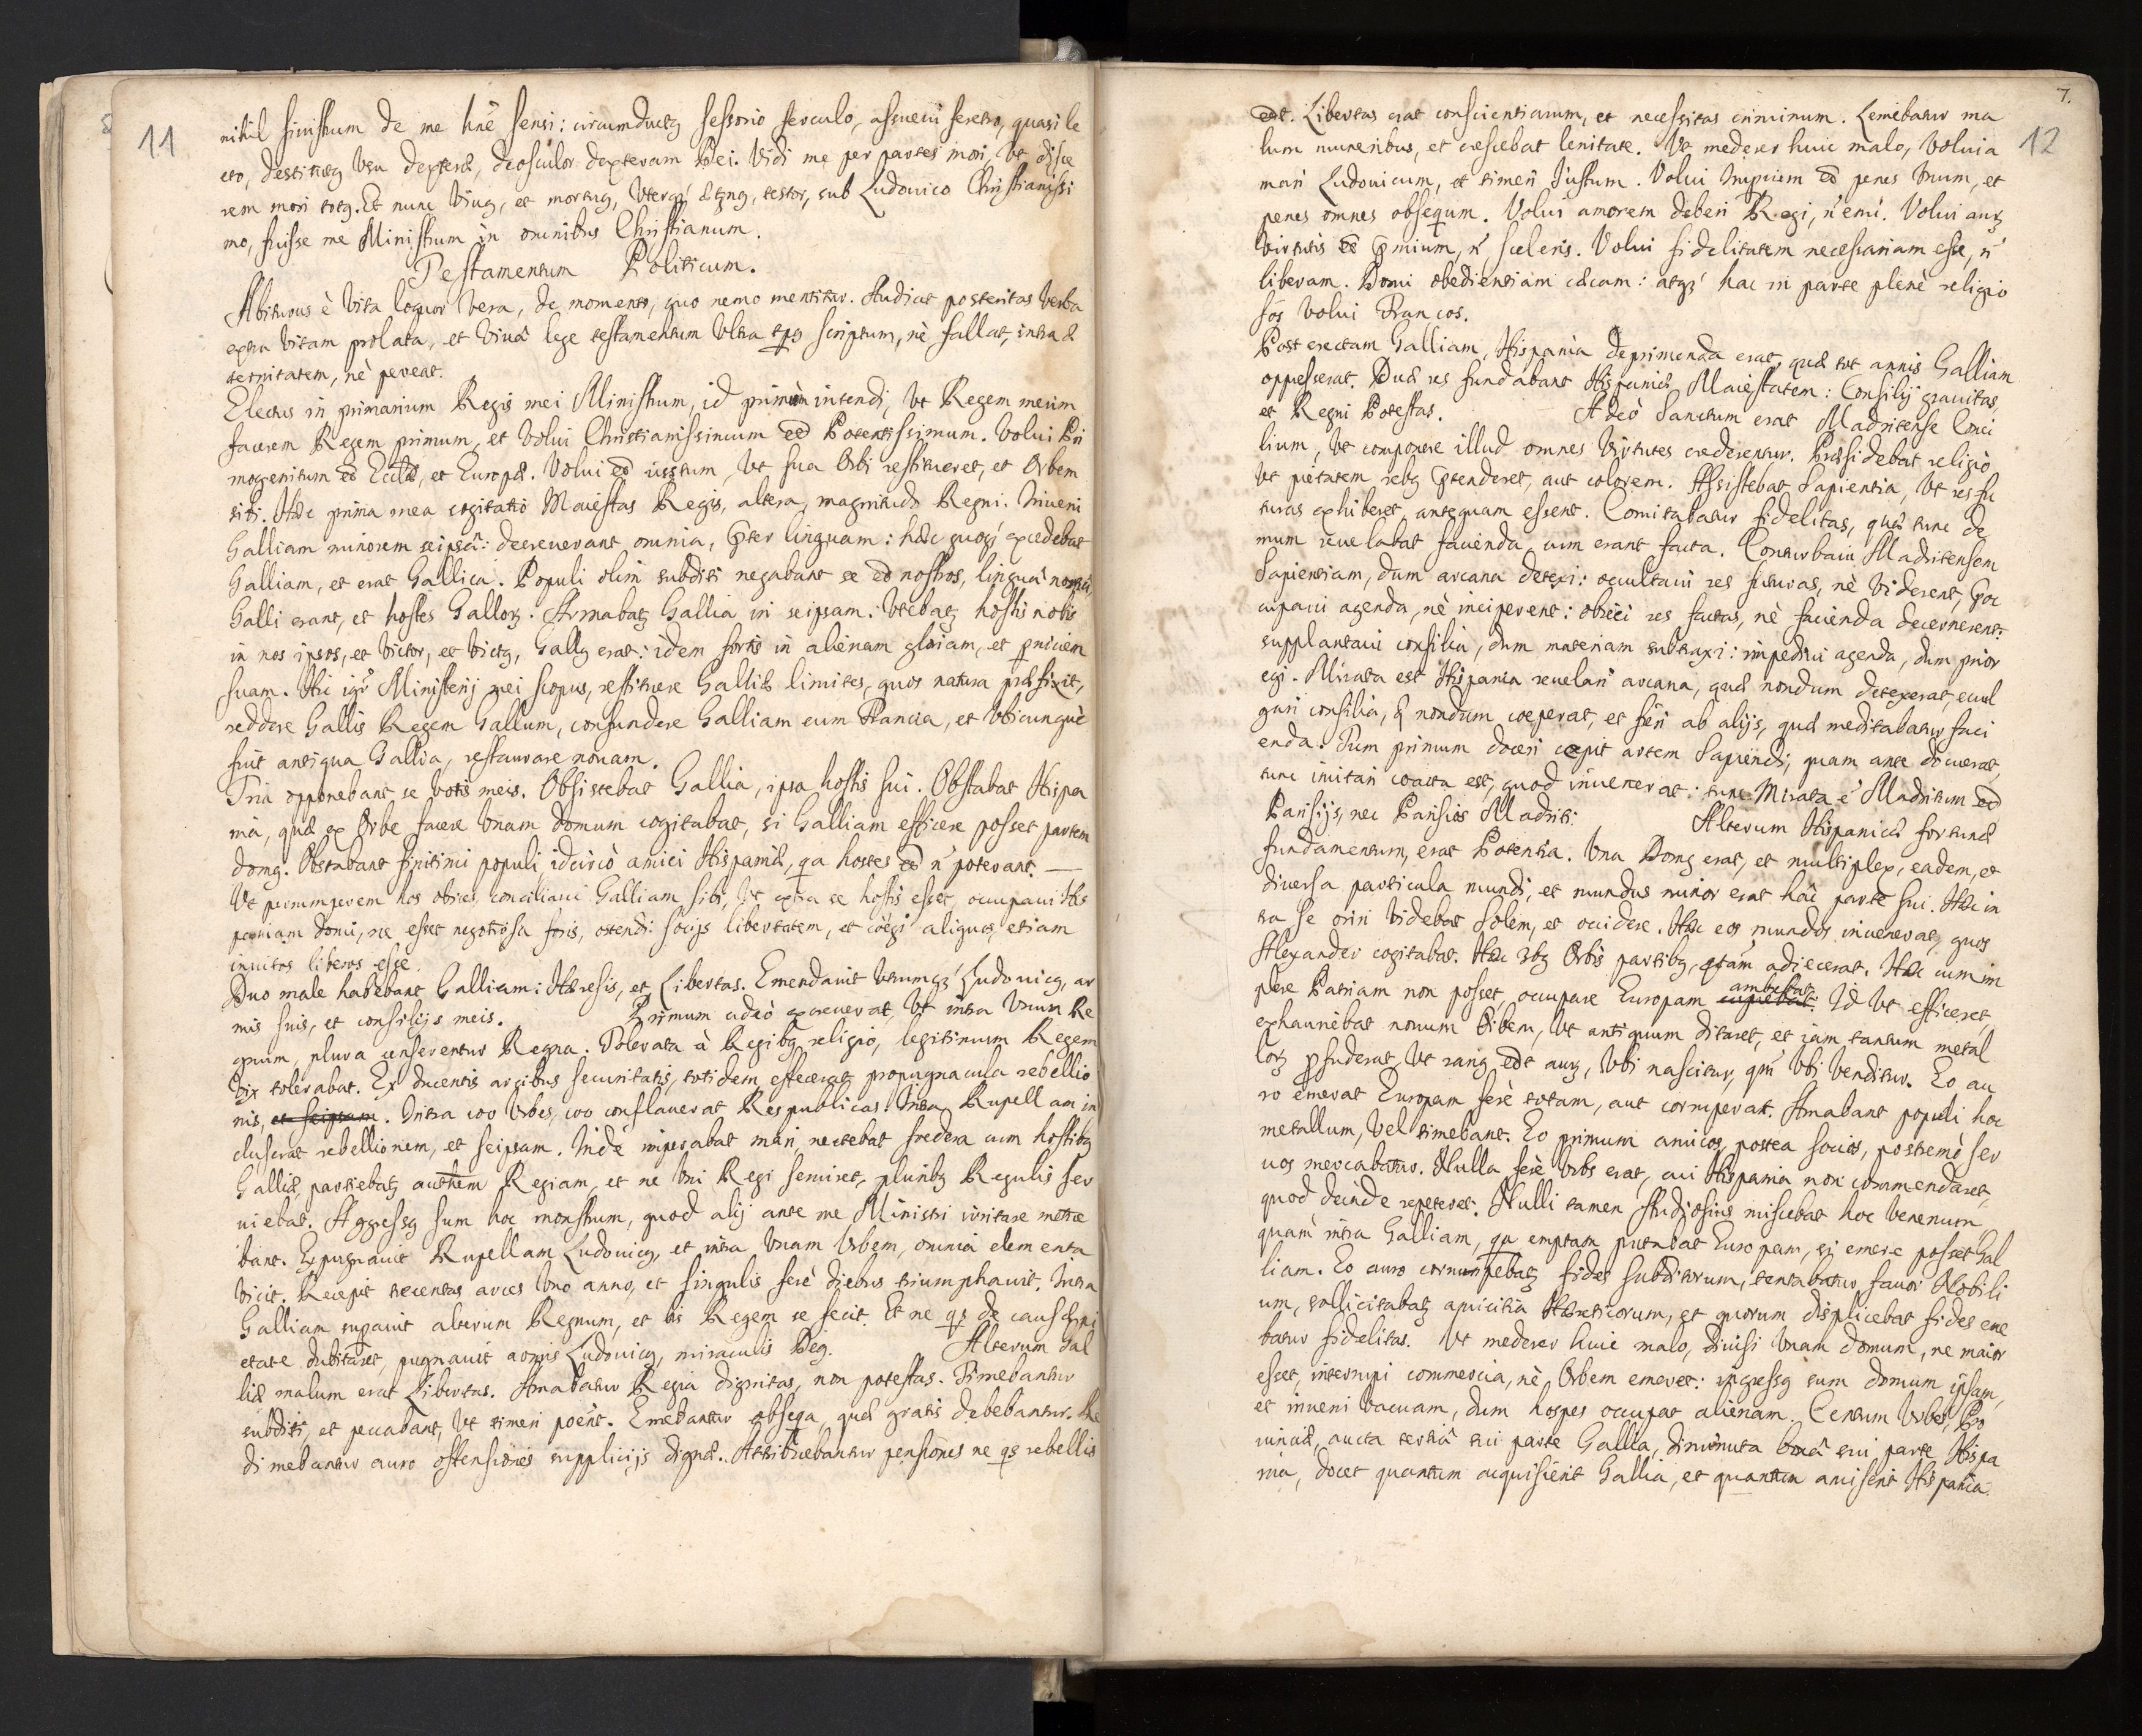 11
nihil sinistrum de me hnẽ sensi: circumductꝫ sessorio ferculo, assuevi feretro, quasi le
cto, destitutꝫ usu dexteræ, deosculor dexteram Dei. Vidi me per partes mori, Vt disce
rem mori totꝫ. Et nunc Vivꝫ, et mortuꝫ, testor, sub Ludovico Christianissi
mo, fuisse me Ministrum in omnibus Christianum.
Testamentum Politicum.
Abiturus è Vita loquor Vera, de momento, quo nemo mentitur. Audiat posteritas Verba
extra Vitam prolata, et Vivâ lege testamentum Ultra tps scriptum, nè fallat, intra æ
ternitatem, nè pereat.
Electus in primarium Regis mei Ministrum, id primùm intendi, Vt Regem meum
facerem Regem primum, et Volui Christianissimum eẽ Potentissimum. Volui Pri
mogenitum eẽ Eccłæ, et Europæ. Volui eẽ iustum, Vt sua Orbi restitueret, et Orbem
sibi. Hæc prima mea cogitatio Maiestas Regis, altera, magnitudo Regni. Inveni
Galliam minorem seipsâ: decreverant omnia, p̃ter linguam: hæc quoqꝫ excedebat
Galliam, et erat Gallica. Populi olim subditi negabant se eẽ nostros, linguâ nostrâ,
Galli erant, et hostes Gallorꝫ. Armabatꝫ Gallia in seipsam: Utebatꝫ hostis nobis
in nos ipsos, et Victor, et Victꝫ, Gallꝫ erat: idem fortis in alienam gloriam, et p̱niciem
suam. Hic igr̃ Ministerij mei scopus, restituere Galliæ limites, quos natura præfixit,
reddere Gallis Regem Gallum, confundere Galliam cum Francia, et Ubicunquè
fuit antiqua Gallia, restaurare novam.
Tria opponebant se votis meis. Obsistebat Gallia, ipsa hostis sui. Obstabat Hispa
nia, quæ ex Orbe facere Unam domum cogitabat, si Galliam efficere posset partem
domꝫ. Obstabant finitimi populi, idcircò amici Hispaniæ, qa hostes eẽ ñ poterant. —
Vt perrumperem hos obices, conciliavi Galliam sibi, Vt extra se hostis esset, occupavi His
paniam domi, ne esset negotiosa foris, ostendi socijs libertatem, et coëgi aliquos, etiam
invitos liberos esse.
Duo male habebant Galliam: Hæresis, et Libertas. Emendavit Utrumqꝫ Ludovicꝫ, ar
mis suis, et consilijs meis. Primum adeò excreverat, Vt intra Unum Re
gnum, plura censerentur Regna. Tolerata à Regibꝫ religio, legitimum Regem
Vix tolerabat. Ex ducentis arcibus securitatis, totidem effecerat propugnacula rebellio
nis, et seipsam. Intra coo Urbes, coo conflaverat Respublicas. Intra Rupellam in
cluserat rebellionem, et seipsam. Inde imperabat mari, nectebat foedera cum hostibꝫ
Galliæ, partiebatꝫ authem Regiam, et ne Uni Regi serviret, pluribꝫ Regulis ser
viebat. Aggressꝫ sum hoc monstrum, quod alij ante me Ministri irritare metue
bant. Expugnavit Rupellam Ludovicꝫ, et intra Unam Urbem, omnia elementa
Vicit. Recepit trecentas arces Uno anno, et singulis ferè diebus triumphavit. Intra
Galliam superavit alterum Regnum, et bis Regem se fecit. Et ne qs de causæ pi
etate dubitaret, pugnavit armis Ludovicꝫ, miraculis Deꝫ. Alterum Gal
liæ malum erat Libertas. Amabatur Regia dignitas, non potestas. Timebantur
subditi, et peccabant, Vt timeri possẽnt. Emebantur obseqa, quæ gratis debebantur. Re
dimebantur auro offensiones supplicijs dignæ. Attribuebantur pensiones ne qs rebellis
7.
12
eẽt. Libertas erat conscientiarum, et necessitas criminum. Leniebatur ma
lum muneribus, et crescebat lenitate. Vt mederer huic malo, Volui a
mari Ludovicum, et timeri Justum. Volui Imperium eẽ penes Unum, et
penes omnes obsequm. Volui amorem deberi Regi, ñ emi. Volui aurꝫ
Virtutis eẽ p̃mium, ñ sceleris. Volui fidelitatem necessariam esse, ñ
liberam. Domi obedientiam cæcam: atqꝫ hac in parte plenè religio
sos Volui Francos.
Post erectam Galliam, Hispania deprimenda erat, quæ tot annis Galliam
oppresserat. Duæ res fundabant Hispanicæ Maiestatem: Consilij gravitas,
et Regni Potestas. Adeò Sanctum erat Madritense Conci
lium, Vt componere illud omnes Virtutes crederentur. Præsidebat religio,
Vt pietatem rebꝫ p̃tenderet, aut colorem. Assistebat Sapientia, Vt res fu
turas exhiberet, antequam essent. Comitabatur fidelitas, quæ tunc de
mum revelabat facienda, cum erant facta. Conturbavi Madritensem
Sapientiam, dum arcana detexi: occultavi res futuras, nè Viderent, p̃oc
cupavi agenda, nè inciperent: obieci res factas, nè facienda decernerent:
supplantavi consilia, dum materiam subtraxi: impedivi agenda, dum prior
egi. Mirata est Hispania revelari arcana, quæ nondum detexerat, evul
gari consilia, q̃ nondum coeperat, et fieri ab alijs, quæ meditabatur faci
enda. Tum primum doceri cœpit artem Sapiendi, quam ante docuerat,
tunc imitari coacta est, quod invenerat: tunc Mirata ẽ Madritum eẽ
Parisijs, nec Parisios Madriti. Alterum Hispanicæ fortunæ
fundamentum, erat Potentia. Una Domꝫ erat, et multiplex, eadem, et
diversa particula mundi, et mundus minor erat hâc parte sui. Hæc in
tra se oriri Videbat Solem, et occidere. Hæc eos mundos invenerat, quos
Alexander cogitabat. Hæc 3bꝫ Orbis partibꝫ, qtam adiecerat. Hæc cum im
plere Patriam non posset, occupare Europam cupiebat ambiebat. Id Vt efficeret,
exhauriebat novum Orbem, Vt antiquum ditaret, et iam tantum metal
lorꝫ p̱fuderat, Vt rarꝫ eẽt aurꝫ, Ubi nascitur, qm̃ Ubi Venditur. Eo au
ro emerat Europam ferè totam, aut corruperat. Amabant populi hoc
metallum, Vel timebant. Eo primum amicos, postea socios, postremò ser
vos mercabatur. Nulla ferè Urbs erat, cui Hispania non commendaret,
quod deinde repeteret. Nulli tamen Studiosius miscebat hoc Venenum,
quàm intra Galliam, qa emptam putabat Europam, si emere posset Gal
liam. Eo auro corrumpebatꝫ fides subditorum, tentabatur favor Nobili
um, sollicitabatꝫ amicitia Hæreticorum, et quorum displicebat fides eme
batur fidelitas. Vt mederer huic malo, Divisi Unam domum, ne maior
esset, interrupi commercia, nè Orbem emeret: ingressꝫ sum domum ipsam,
et inveni Vacuam, dum hospes occupat alienam. Centum Urbes, Pro
vinciæ, aucta tertiâ sui parte Gallia, diminuta sui parte Hispa
nia, docet quantum acquisierit Gallia, et quantum amiserit Hispania.